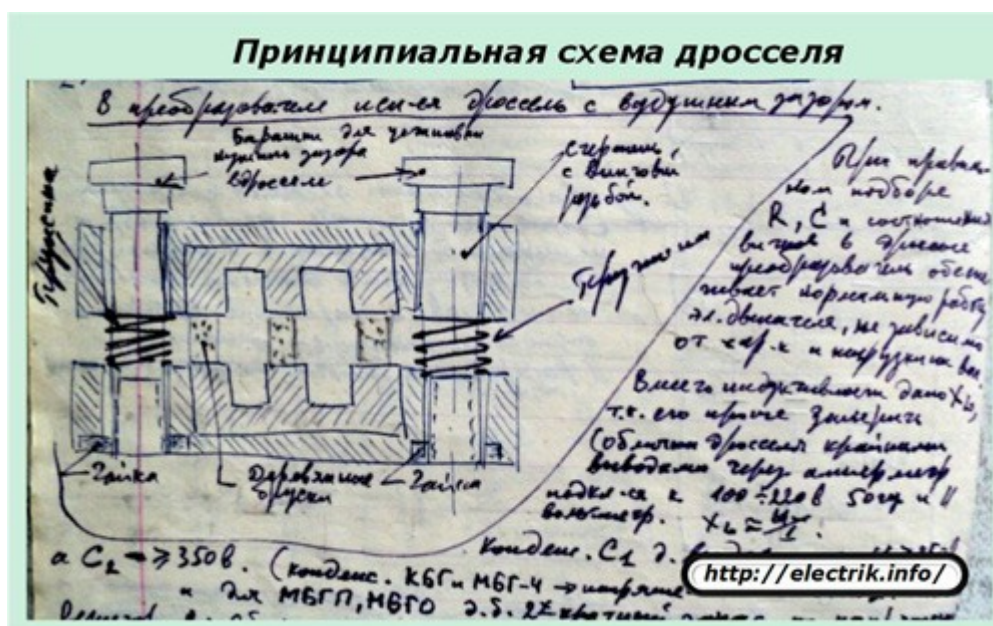 Принципиальная схема дросселя
В преобразователе исп-ся дроссель с воздушным зазором.
Барашки для установки
нужного зазора
в дросселе
стержень
с винтовой
резьбой.
Пружина
Пружина
Гайка
Деревянные
бруски
Гайка
При правиль-
ном подборе
R, C и соотношения
витков в дросселе
преобразователь обеспе-
чивает нормальную работу
эл. двигателя, не зависимо
от хар-к и нагрузки на
Вместо индуктивности дано XL,
т.к. его проще замерить
(обмотки дросселя крайними
выводами через амперметр
подкл-ся к 100÷220в 50гц и ||
вольтметр. XL ≈ U/I.
Конденс. C1 д.
а C2 → ≥350в. (конденс. КБГ и МБГ-Ч →
и для МБГП, МБГО д.б. 2х кратный
http://electrik.info/